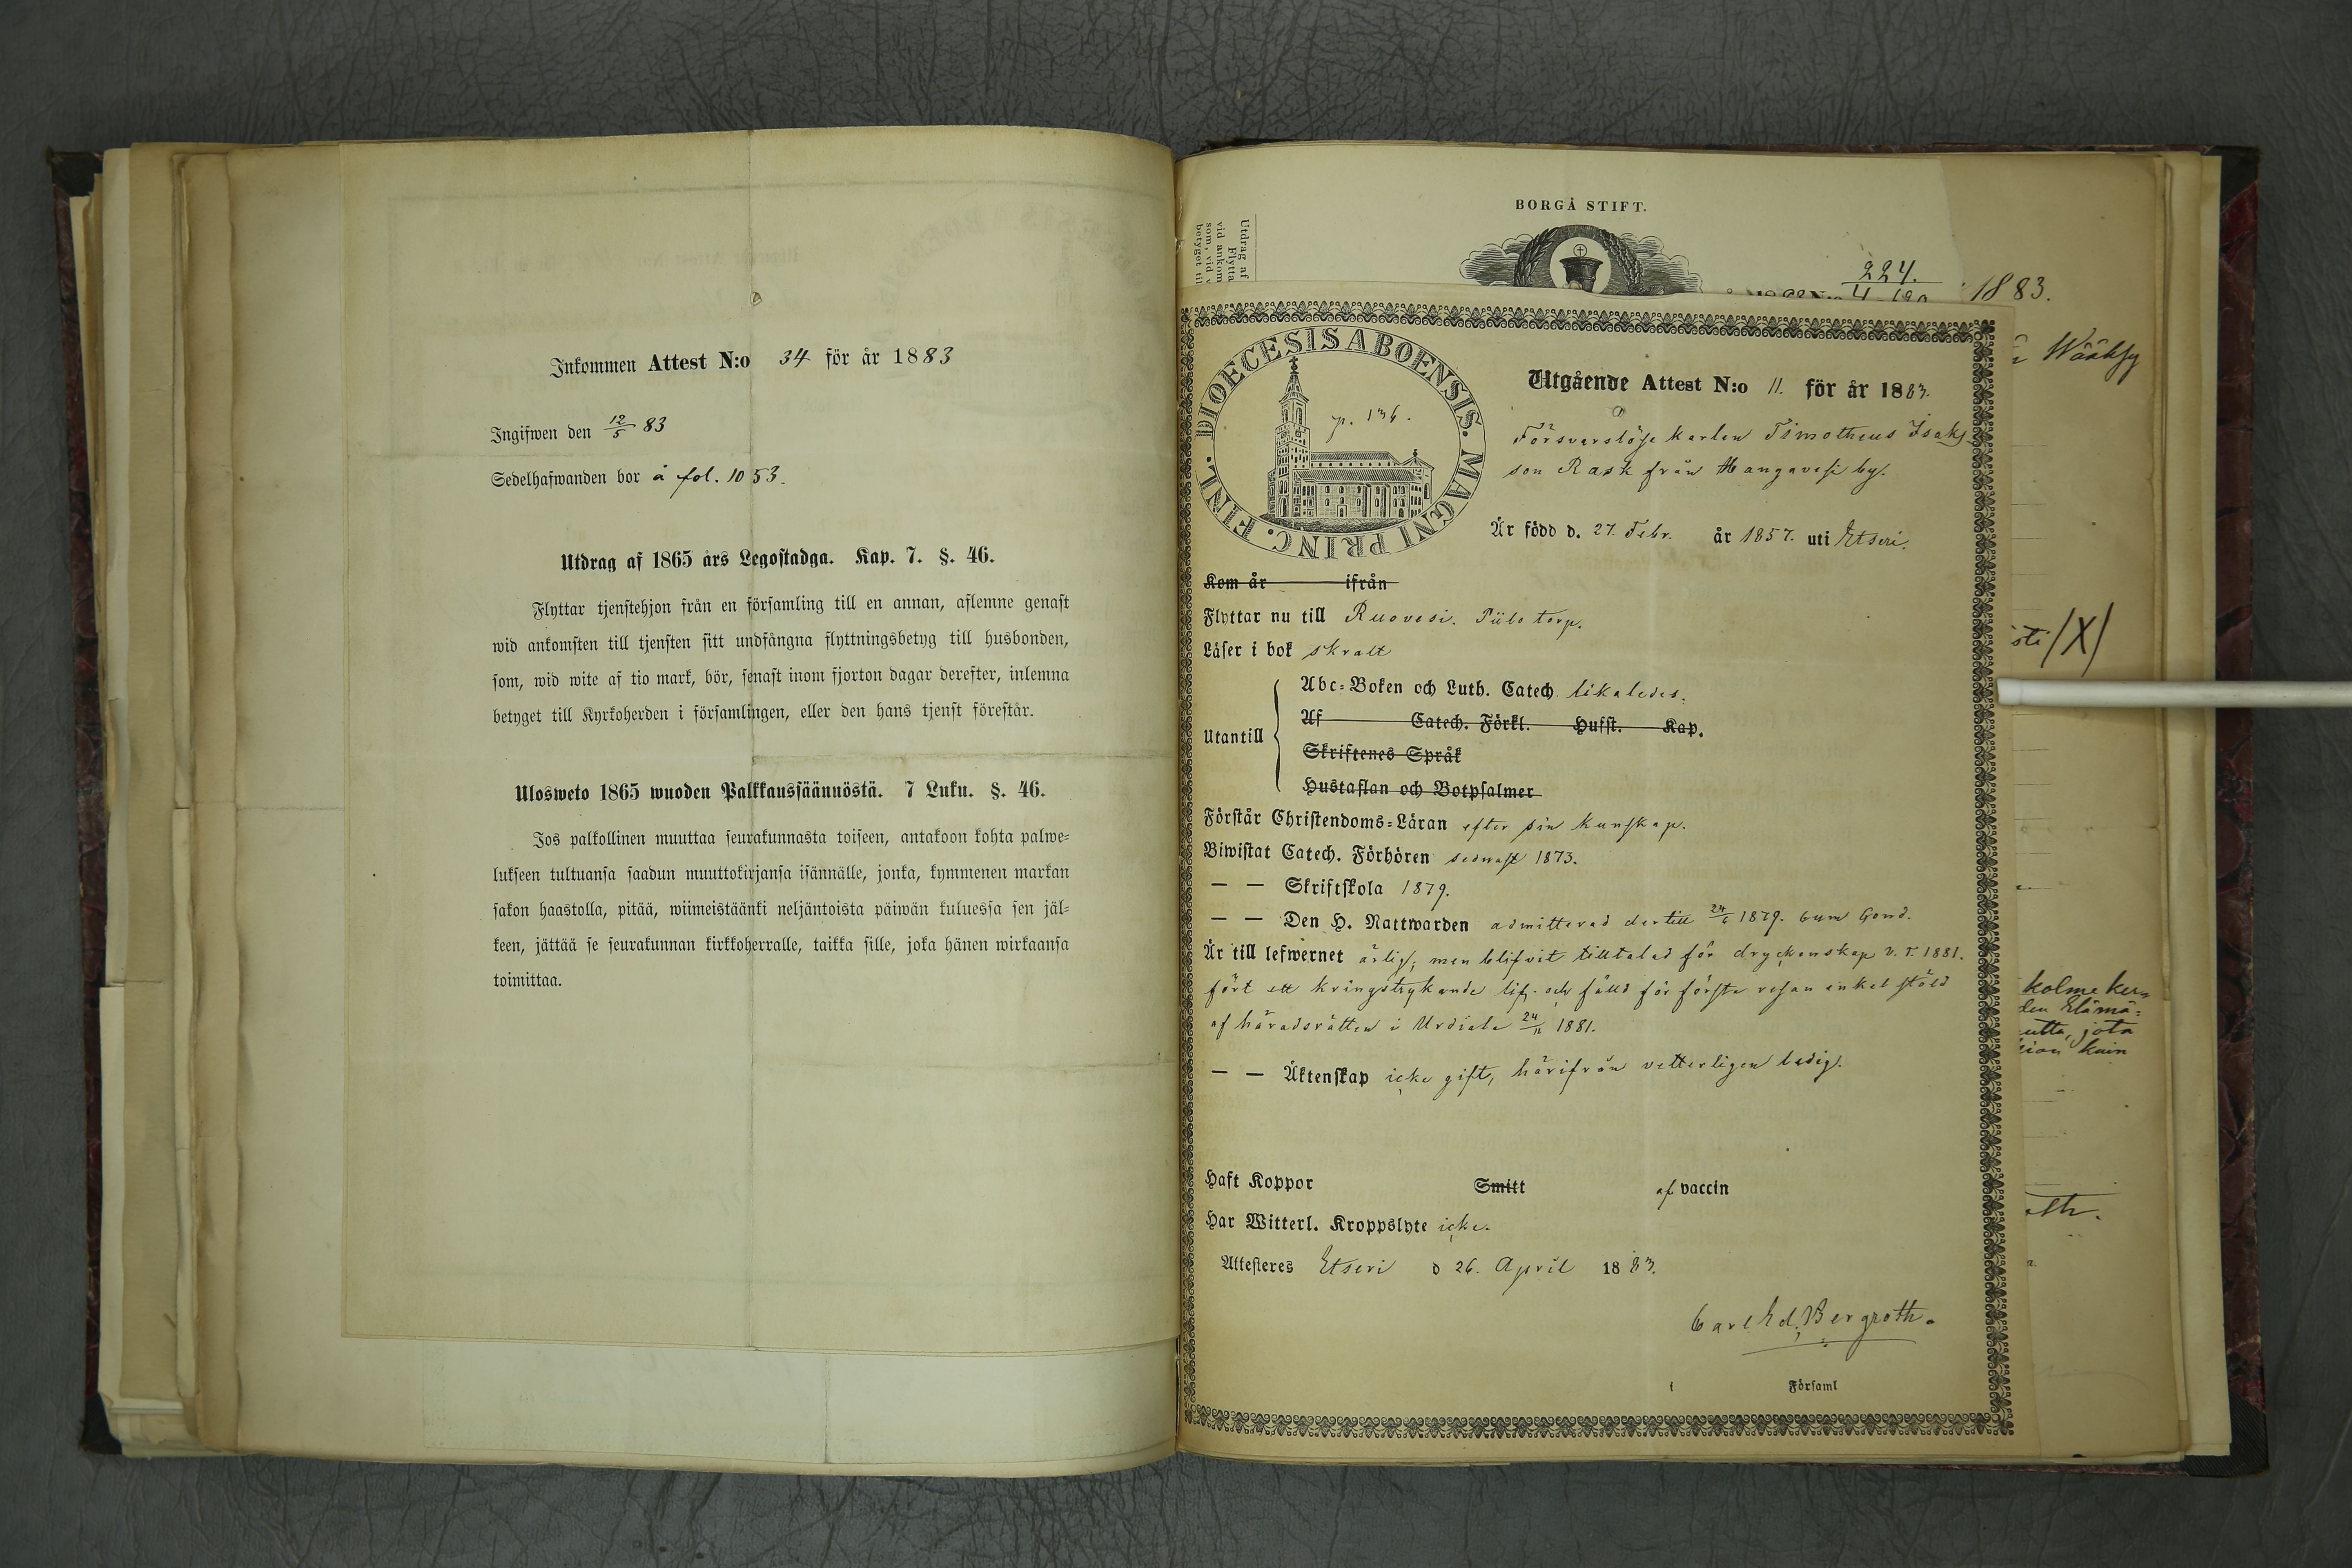 Inkommen Attest N:o 34 för år 1883
Ingifwen den 12/5 83
Sedelhafwanden bor å fol. 1053.
Utdrag af 1865 års Legostadga. Kap. 7. §. 46.
Flyttar tjenstehjon från en församling till en annan, aflemne genast
wid ankomsten till tjensten sitt undfångna flyttningsbetyg till husbonden,
som, wid wite af tio mark, bör, senast inom fjorton dagar derefter, inlemna
betyget till Kyrkoherden i församlingen, eller den hans tjenst förestår.
Ulosweto 1865 wuoden Palkkaussäännöstä. 7 Luku. §. 46.
Jos palkollinen muuttaa seurakunnasta toiseen, antakoon kohta palwe=
lukseen tultuansa saadun muuttokirjansa isännälle, jonka, kymmenen markan
sakon haastolla, pitää, wiimeistäänki neljäntoista päiwän kuluessa sen jäl=
keen, jättää se seurakunnan kirkkoherralle, taikka sille, joka hänen wirkaansa
toimittaa.
BORGÅ STIFT.
Utdrag af
Flytta
vid ankom
som, vid v
betyget til
224.
1883.
Wääksy
DIOECESIS ABOENSIS. MAGNI PRINC. FINL.
p. 136.
Utgående Attest N:o 11. för år 1883.
Försvarslöse karlen Timotheus Isaks
son Rask från Hangavesi by.
Är född d. 27. Febr. år 1857. uti Etseri.
Kom år ifrån
Flyttar nu till Ruovesi. torp.
Läser i bok skralt
Utantill
Abc=Boken och Luth. Catech likaledes.
Af Catech. Förkl. Hufst. Kap.
Skriftenes Språk
Hustaflan och Botpsalmer
Förstår Christendoms=Läran efter sin kunskap.
Biwistat Catech. Förhören sednast 1873.
— — Skriftskola 1879.
— — Den H. Nattwarden admitterad dertill 24/6 1879. cum Cond.
Är till lefwernet ärlig, men blifvit tilltalad för dryckenskap v. t. 1881.
fört ett kringstrykande lif. och fälld för första resan enkel stöld
af häradsrätten i Urdiala 24/11 1881.
— — Äktenskap icke gift, härifrån vetterligen ledig.
Haft Koppor Smitt af vaccin
Har Witterl. Kroppslyte icke.
Attesteres Etseri d 26. April 1883.
Carl Ed. Bergroth.
i Församl
sti /X/
kolme ker
den Elämä=
utta, jota
kuin